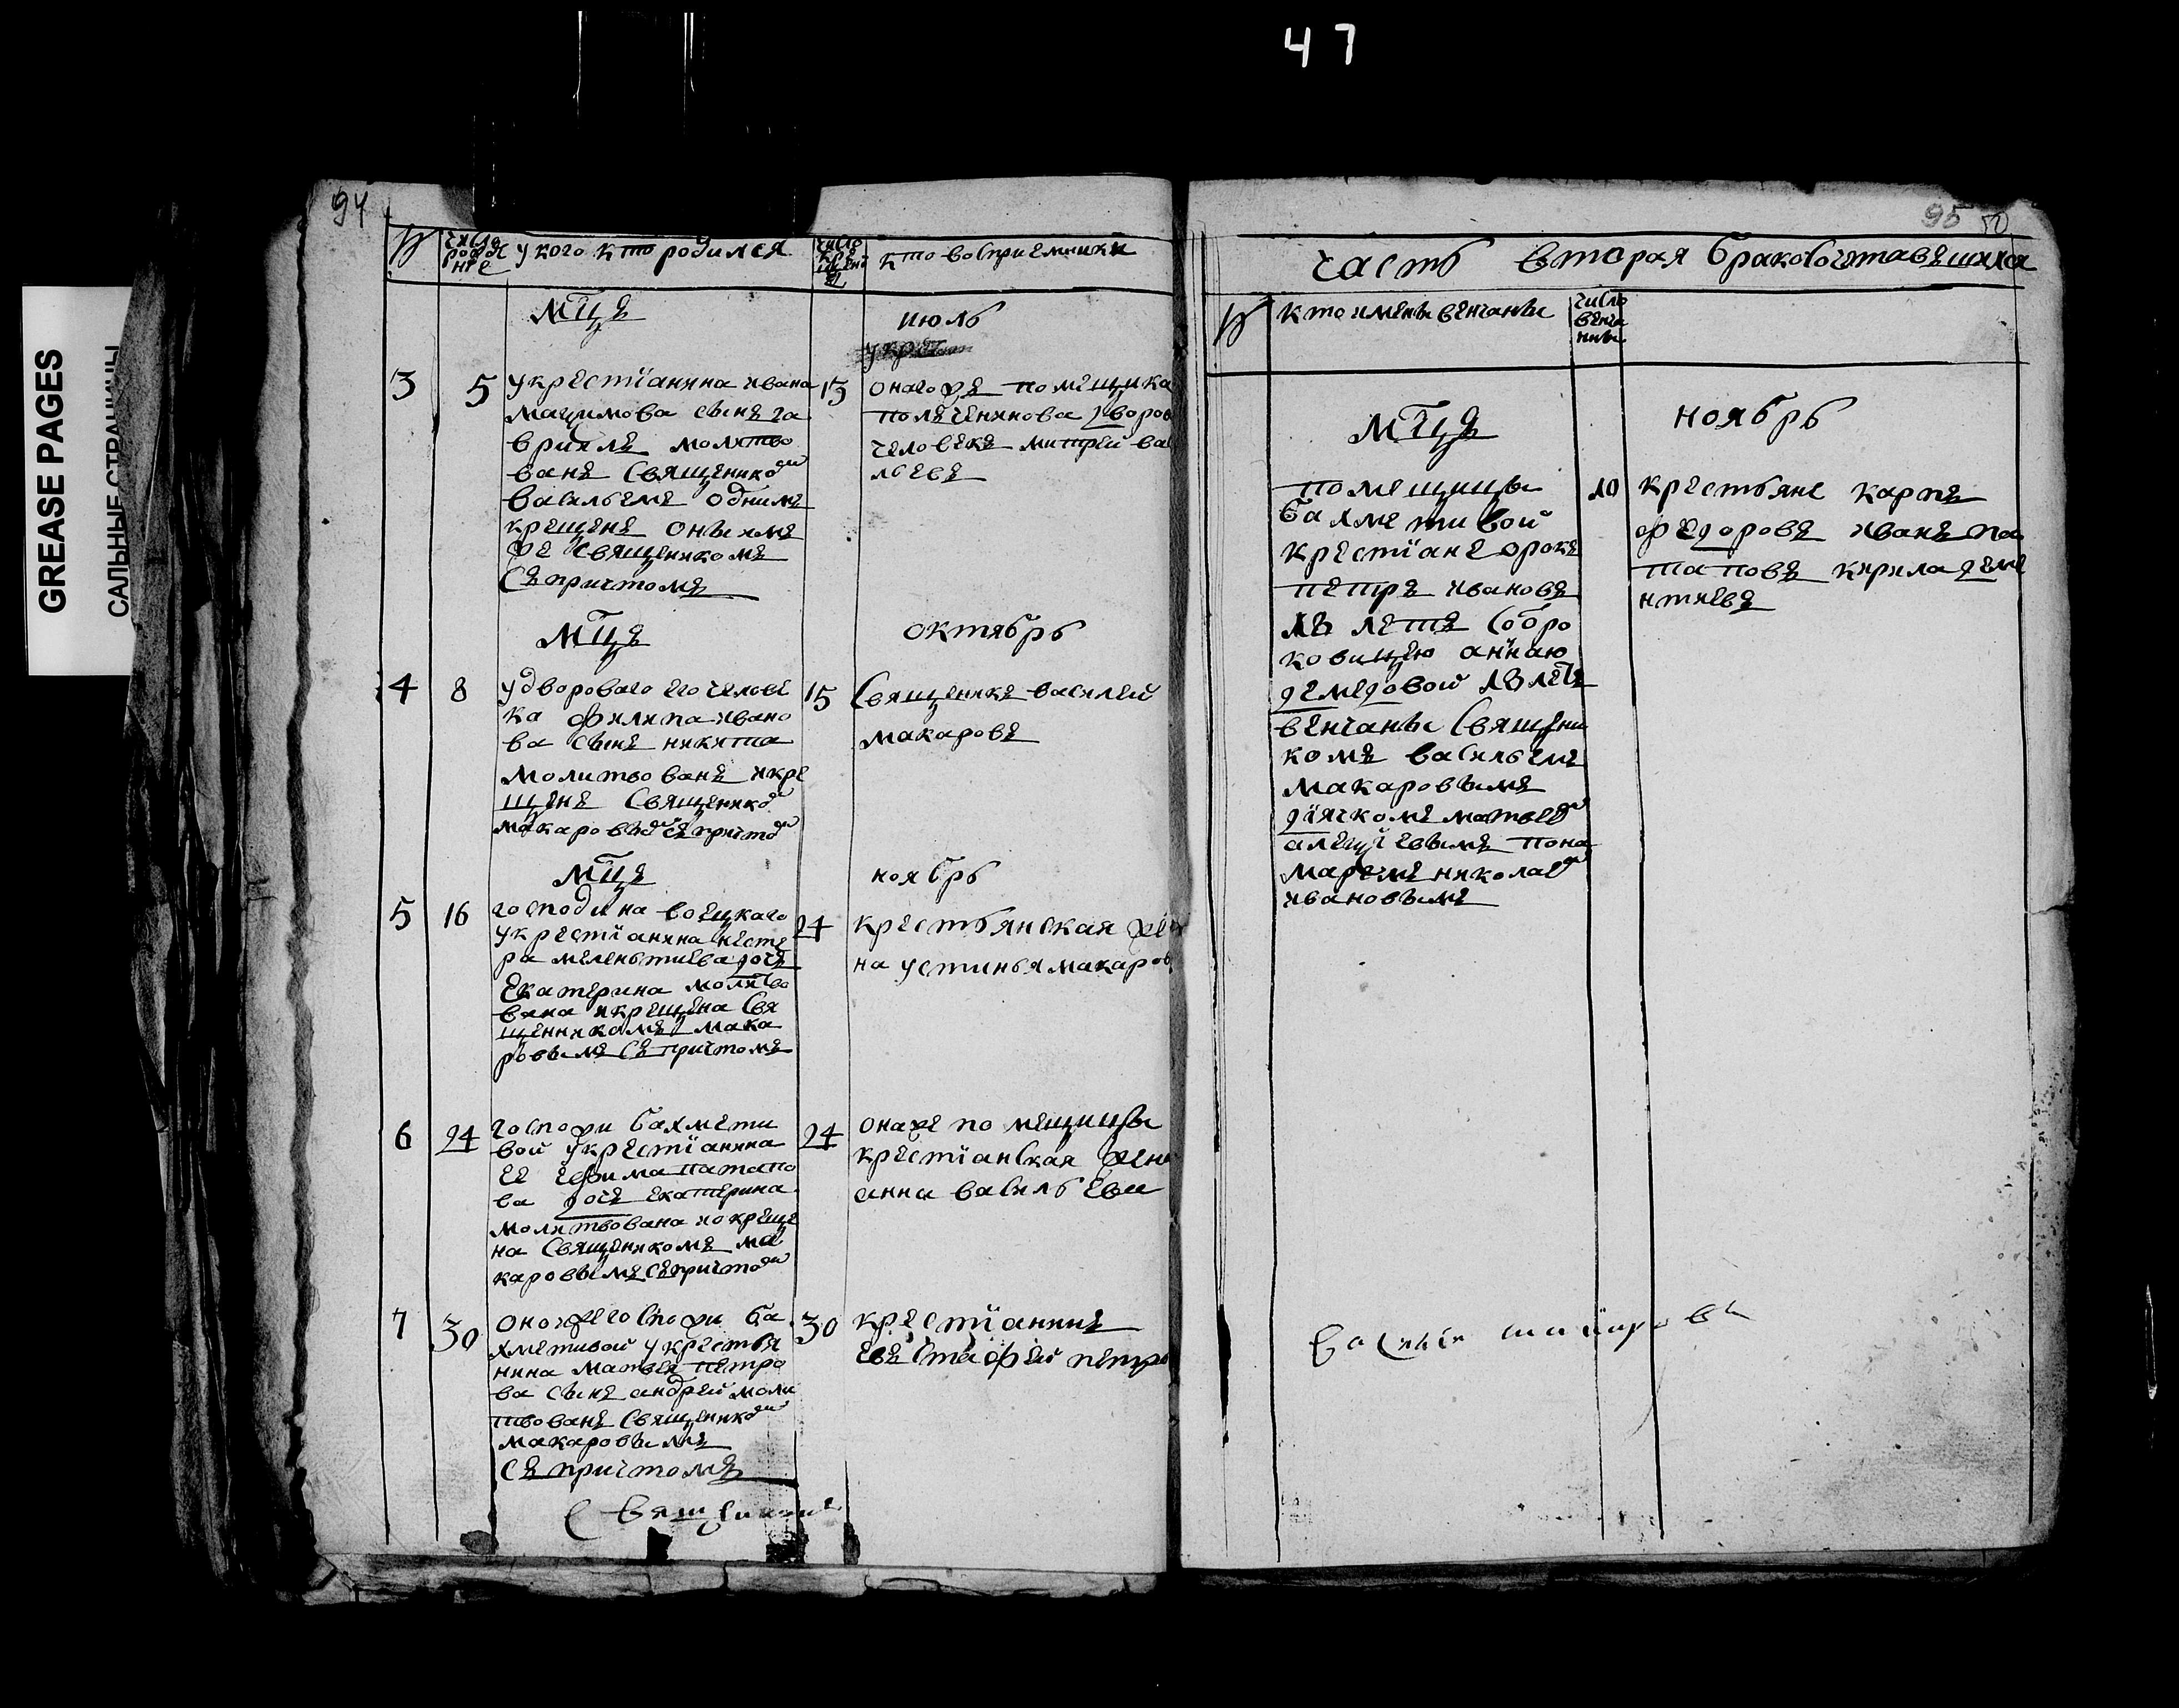 47
GREASE PAGES
САЛЬНЫЕ СТРАНИЦЫ
94
№ число рожде нїе у кого кто родился число крещенїя кто восприемники
мцъ июль
3 5 у крестїанина ивана
мацимова сынъ га
вриилъ молитво
ванъ священиком
васильемъ одним
крещенъ онымъ
же священикомъ
съ причтомъ
13 оногожъ помещика
полчениново дворов
человекъ митрей ва
льевъ
мцъ октябрь
4 8 у двороваго его челове
ка филипа ивано
ва сынъ никита
молитвованъ и кре
щенъ священиком
макаровым съ причтом
15 священикъ василей
макаровъ
мцъ ноябрь
5 16 господина воецкаго
у крестїанина несте
ра мелентиева дочь
екатерина молитво
вана и крещена свя
щенникомъ мака
ровымъ съ причтомъ
24 крестьянская же
на устинья макаров
6 24 госпожи бахмети
вой у крестїанина
ее ефима патапо
ва дочь екатерина
молитвована и окреще
на священикомъ ма
каровымъ съ причтом
24 онаже помещицы
крестїанская жена
анна васильева
7 30 оной же госпожи ба
хметивой у крестья
нина матвея петро
ва сынъ андрей моли
твованъ священиком
макаровымъ
съ причтомъ
30 крестїанинъ
евъстафей петро
священикъ
95
часть вторая бракосочетавшихся
№ кто имены венчаны число венчаныи
мцъ ноябрь
помещицы
бахметивой
крестїане орокъ
петръ ивановъ
лѣтъ с отро
ковицею анною
демидовой лѣтъ
венчаны священи
комъ васильемъ
макаровымъ
дїячкомъ матвеем
алекѣевымъ пона
маремъ николаем
ивановымъ
10 крестьяне карпъ
федоровъ иванъ па
таповъ кирила деме
нтиевъ
василей макаровъ